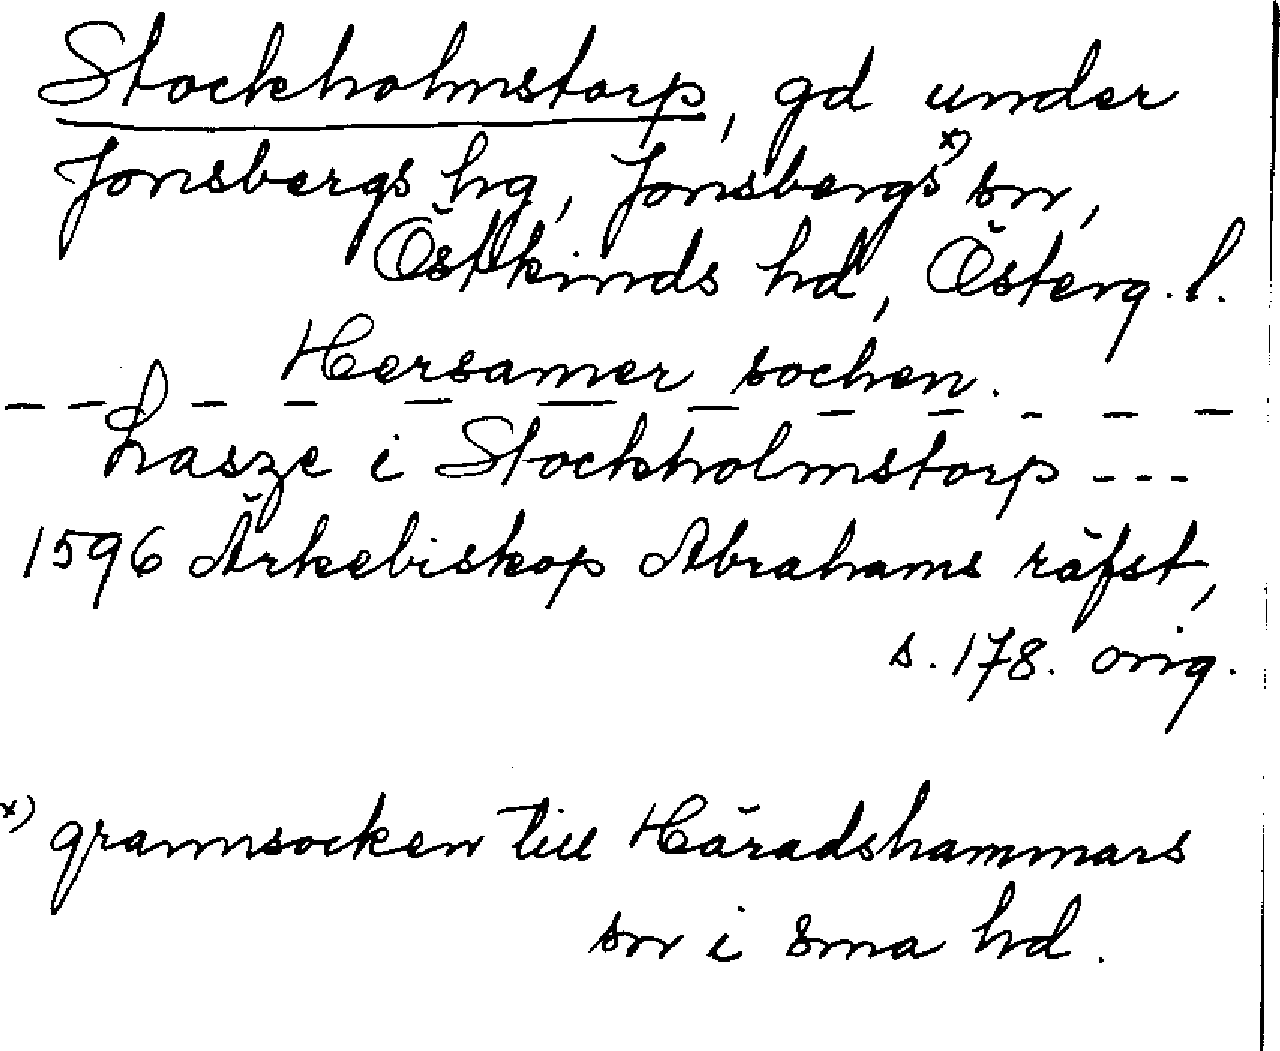 Stockholmstorp, gd under
Jonsbergs hg, Jonsbergs x) sn,
Östkinds hd, Österg. l.
Hersamer sochen.
_ _ _ _ _ _ _ _ _ _ _ _
hasze i Stockholmstorp ---
1596 Ärkebiskop Abrahams räfst,
s. 178. orig.
x) grannsocken till Häradshammars
sn i sma hd.